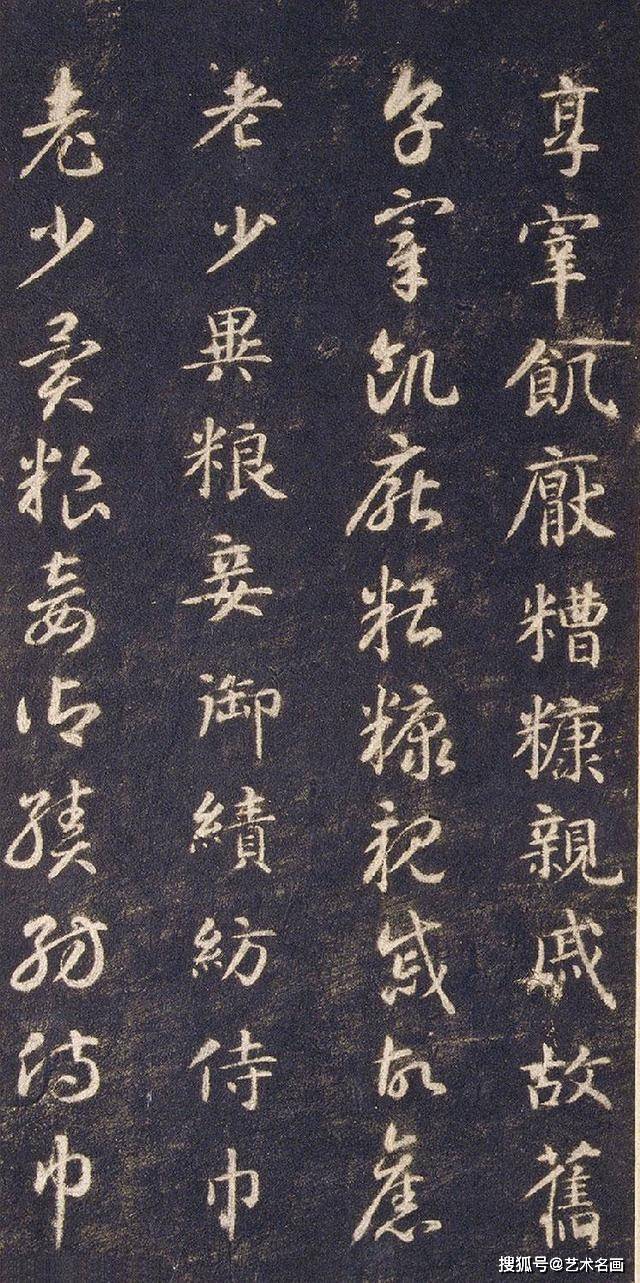 享宰飢厭糟糠親戚故舊
享宰飢厭糟糠親戚故舊
老少異粮妾御績紡侍巾
老少異粮妾御績紡侍巾
搜狐号@艺术名画